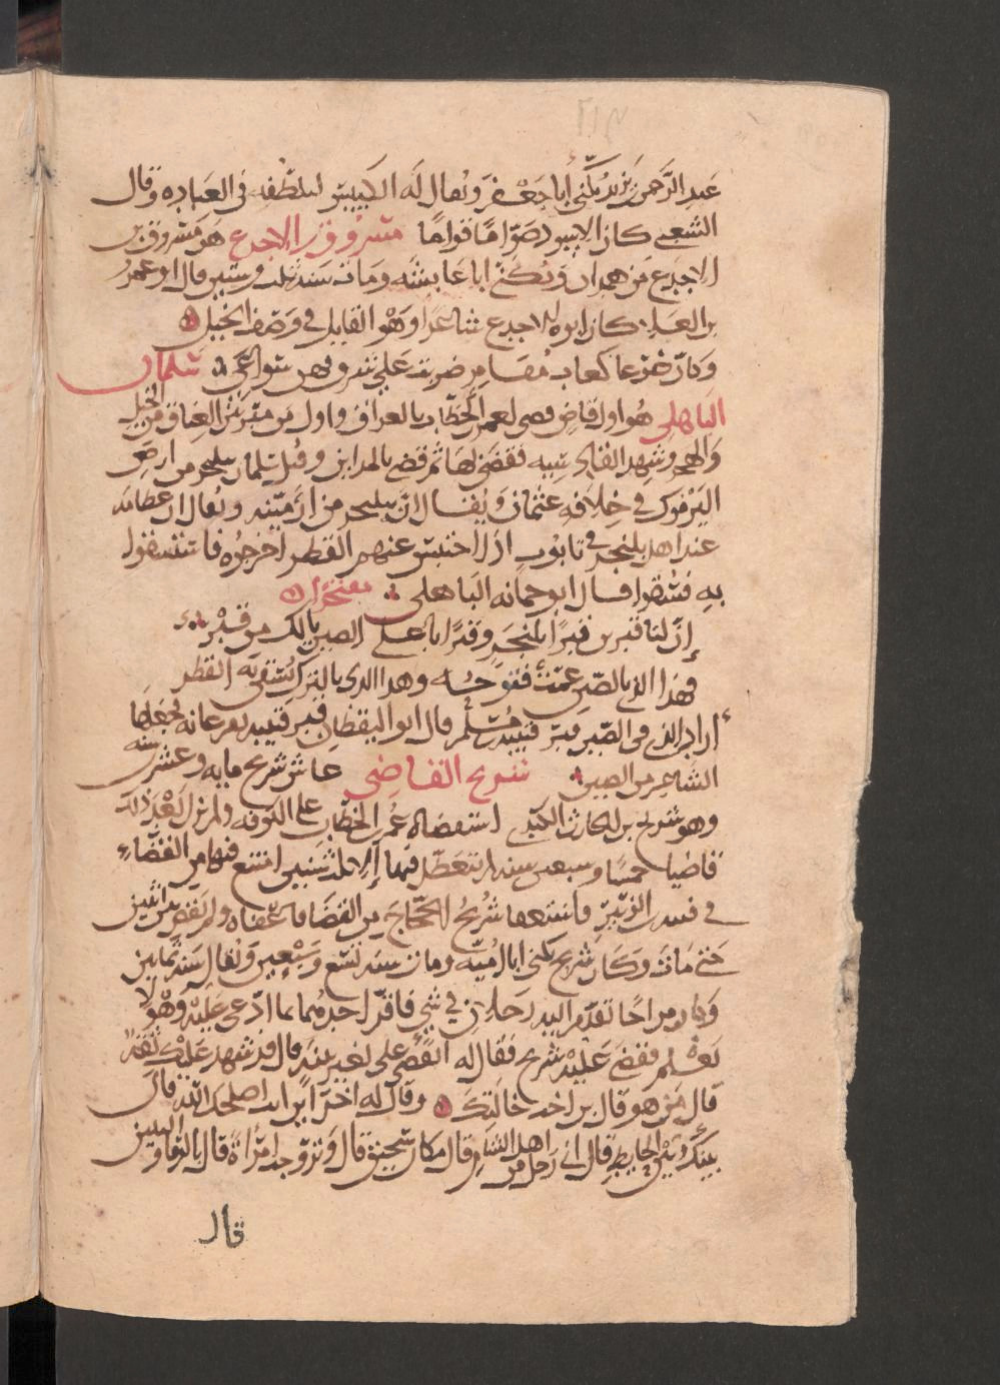 عبد الرحمن بن يزيد يكنى ابا جعفر ويقال له الكيس لتلطفه في العباده وقال
الشعبي كان الاسود صواما قواما مسروق بن الاجدع هو مسروق بن
الاجدع من همدان ويكنى ابا عايشه ومات سنه ثلث وستين قال ابو عمرو
بن العلا كان ابوه الاجدع شاعرا وهو القايل في وصف الخيل
وكان صرعاها كعاب مقامر ضربت على شزن وهن شواعي سلمان
الباهلي هو اول قاض قضى لعمر بن الخطاب بالعراق واول من ميز بين العتاق من الخيل
والهجن وشهد القادسيه فقضى لها ثم قضى بالمداين وقتل سلمان ببلنجر من ارض
اليرموك في خلافه عثمان ويقال ان بلنجر من ارمينيه ويقال ان عظامه
عند اهل بلنجر في تابوت اذا احتبس عنهم القطر اخرجوه فاستسقوا
به فسقوا فقال ابو جمانه الباهلي
ان لنا قبرين قبرا بلنجر وقبرا باعلى الصين يالك من قبر
فهذا الذي بالصين عمت فتوحه وهذا الذي بالترك يسقى به القطر
اراد بالذي في الصين قبر قتيبه بن مسلم قال ابو اليقظان قبر قتيبه بفرغانه فجعلها
الشاعر من الصين شريح القاضي عاش شريح مايه وعشرين سنه
وهو شريح بن الحارث الكندي استقضاه عمر بن الخطاب على الكوفه ولم يزل بعد ذلك
قاضيا خمسا وسبعين سنه لم تتعطل فيها الا ثلث سنين امتنع فيها من القضاء
في فتنه بن الزبير فاستعفا شريح الحجاج من القضا فاعفاه ولم يقض بين اثنين
حتى مات وكان شريح يكنى ابا اميه ومات سنه تسع وسبعين ويقال سنه ثمانين
وكان مزاحا تقدم اليه رجلان في شي فاقر احدهما بما ادعى عليه وهو لا
يعلم فقضى عليه شريح فقال له اتقضي علي بغير بينه قال قد شهد عليك ثقه
قال من هو قال بن اخت خالتك وقال له اخر اين انت اصلحك الله قال
بينك وبين الحايط قال اني رجل من اهل الشام قال مكان سحيق قال وتزوجت امراة قال بالرفا والبنين
قال